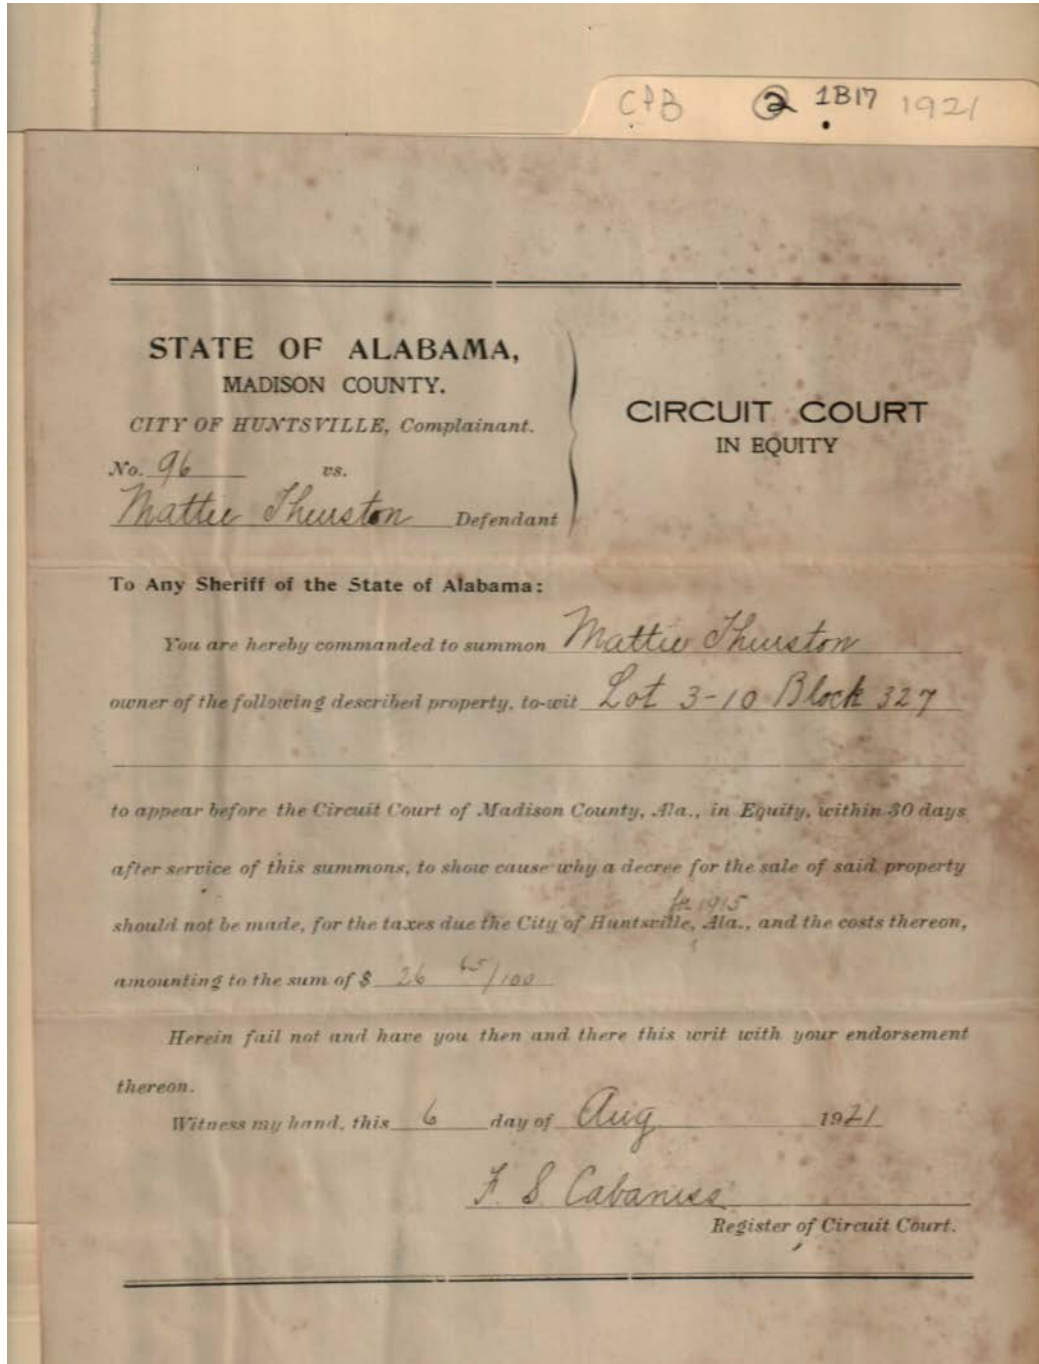 CPB ② 1B17 1921
STATE OF ALABAMA,
MADISON COUNTY.
CITY OF HUNTSVILLE, Complainant.
No. 96 vs.
Mattie Thurston Defendant
CIRCUIT COURT
IN EQUITY
To Any Sheriff of the State of Alabama:
You are hereby commanded to summon Mattie Thurston
owner of the following described property, to-wit Lot 3-10 Block 327
to appear before the Circuit Court of Madison County, Ala., in Equity, within 30 days
after service of this summons, to show cause why a decree for the sale of said property
for 1915
should not be made, for the taxes due the City of Huntsville, Ala., and the costs thereon,
amounting to the sum of $ 26 65/100
Herein fail not and have you then and there this writ with your endorsement
thereon.
Witness my hand, this 6 day of Aug 1921
F. S. Cabaniss
Register of Circuit Court.